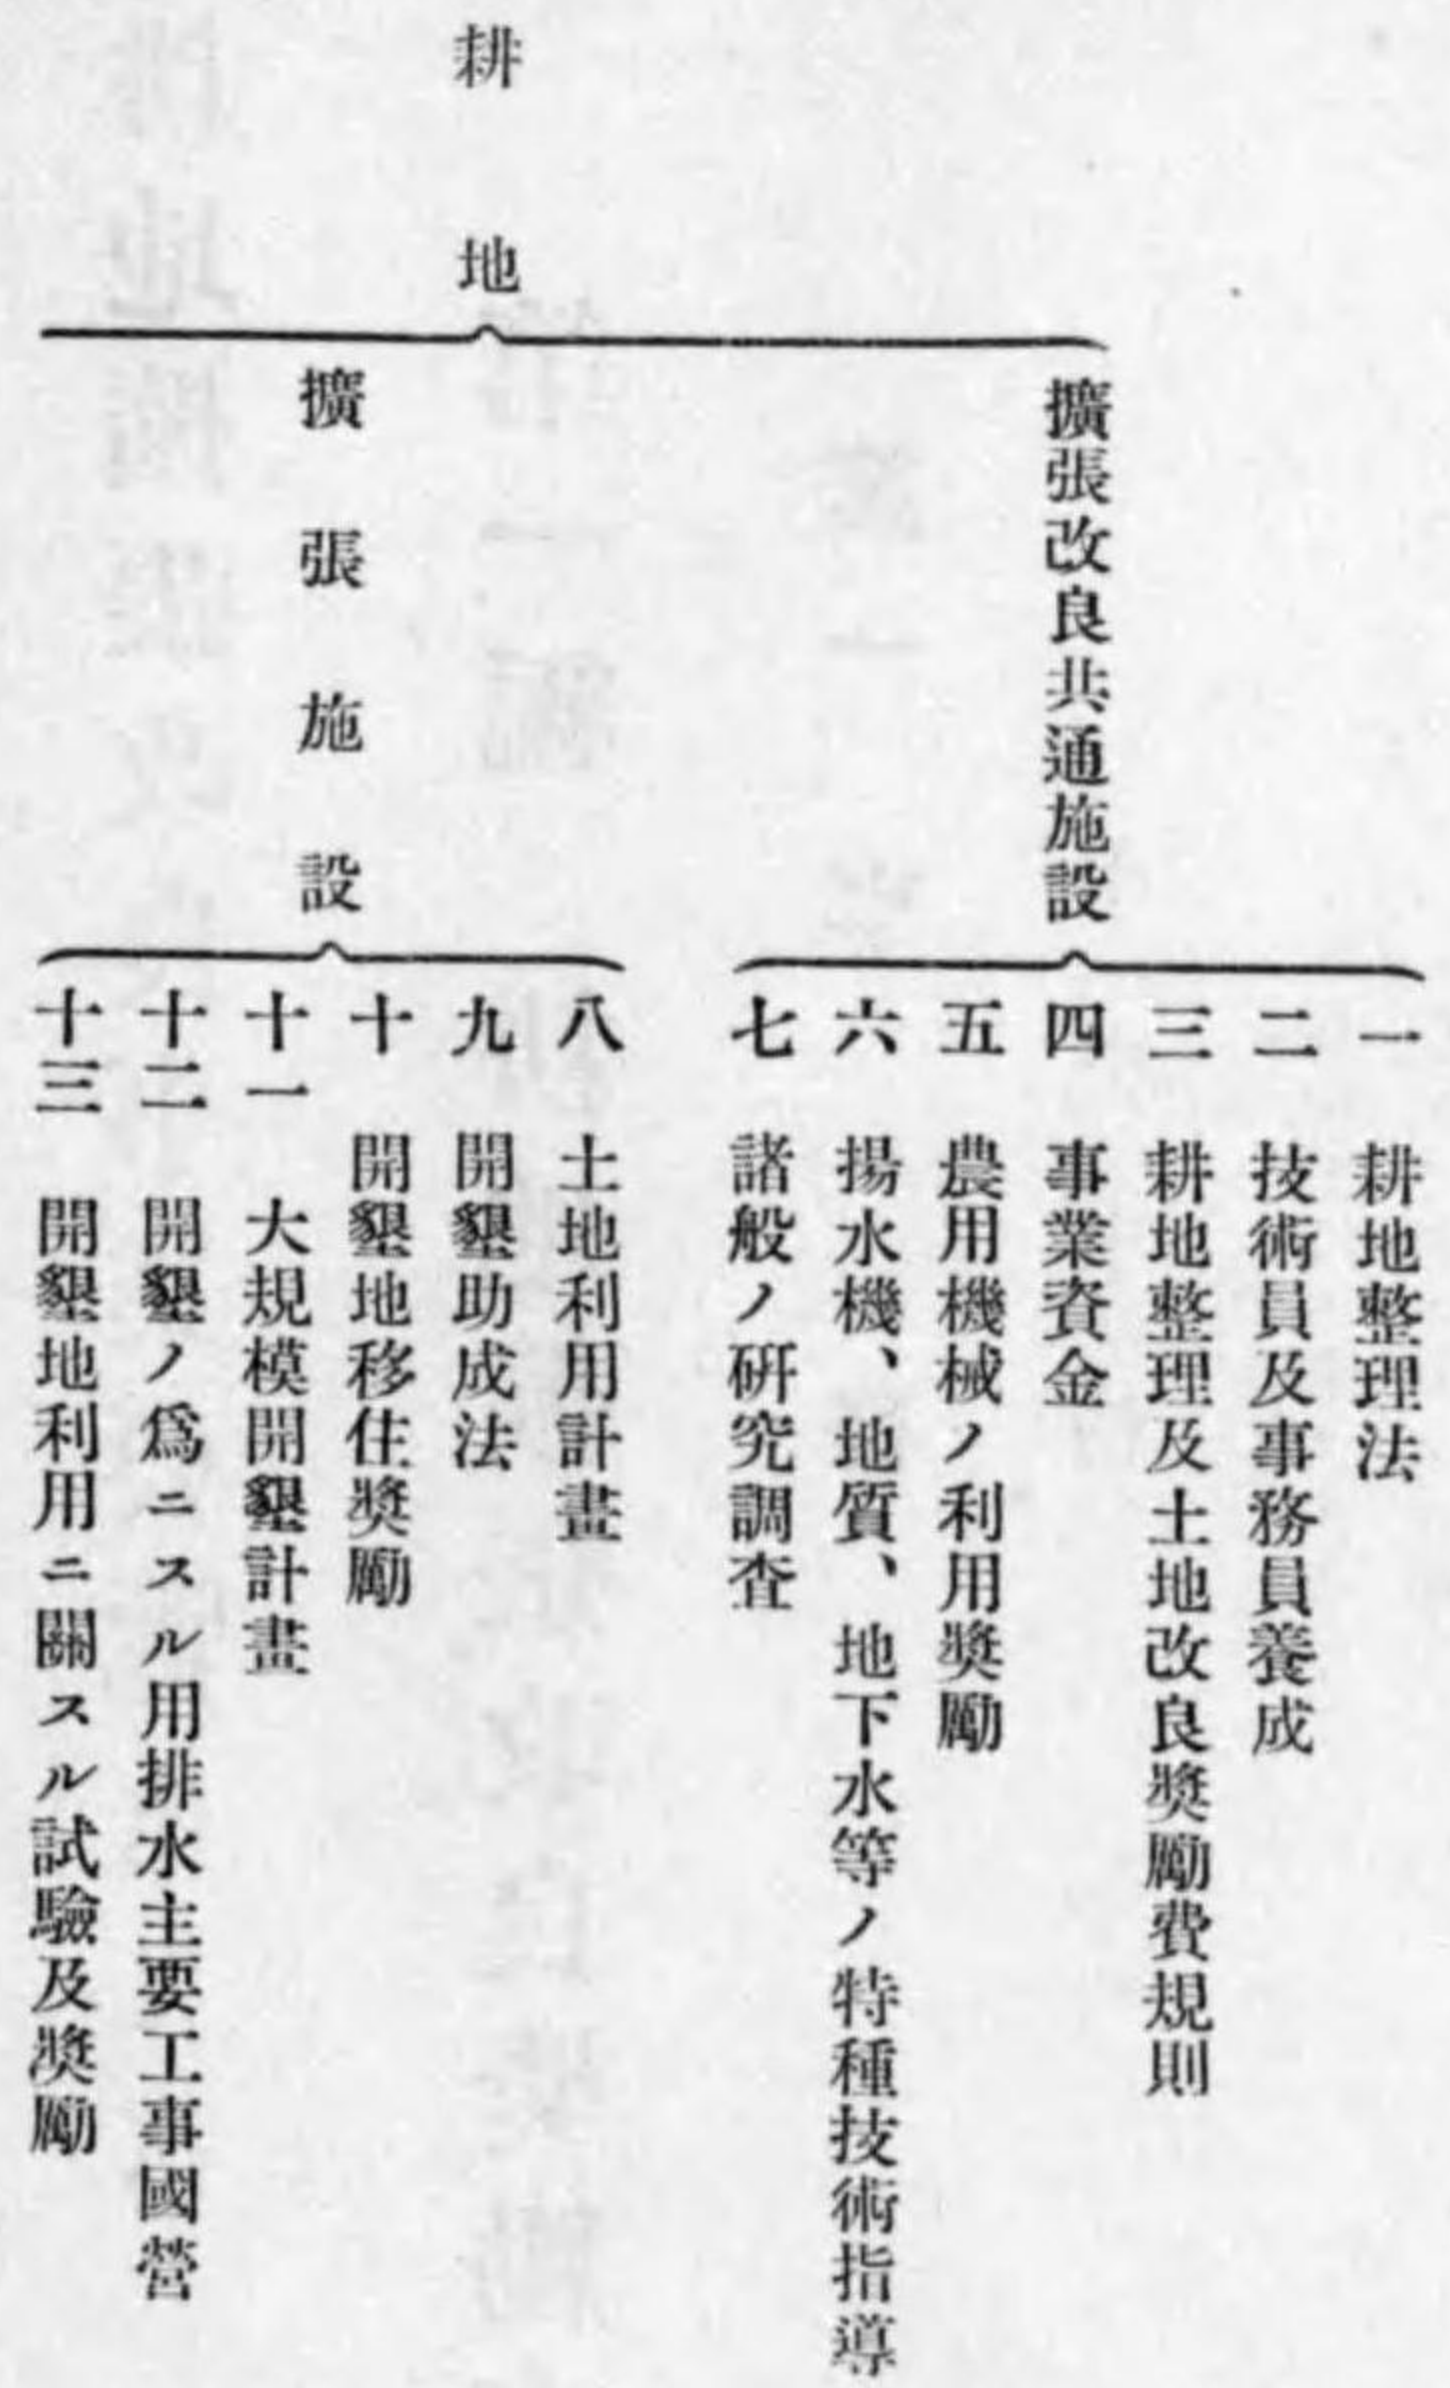 耕地
擴張改良共通施設
一 耕地整理法
二 技術員及事務員養成
三 耕地整理及土地改良奬勵費規則
四 事業資金
五 農用機械ノ利用奬勵
六 揚水機、地質、地下水等ノ特種技術指導
七 諸般ノ硏究調査
擴張施設
八 土地利用計畫
九 開墾助成法
十 開墾地移住奬勵
十一 大規模開墾計畫
十二 開墾ノ爲ニスル用排水主要工事國營
十三 開墾地利用ニ關スル試驗及奬勵